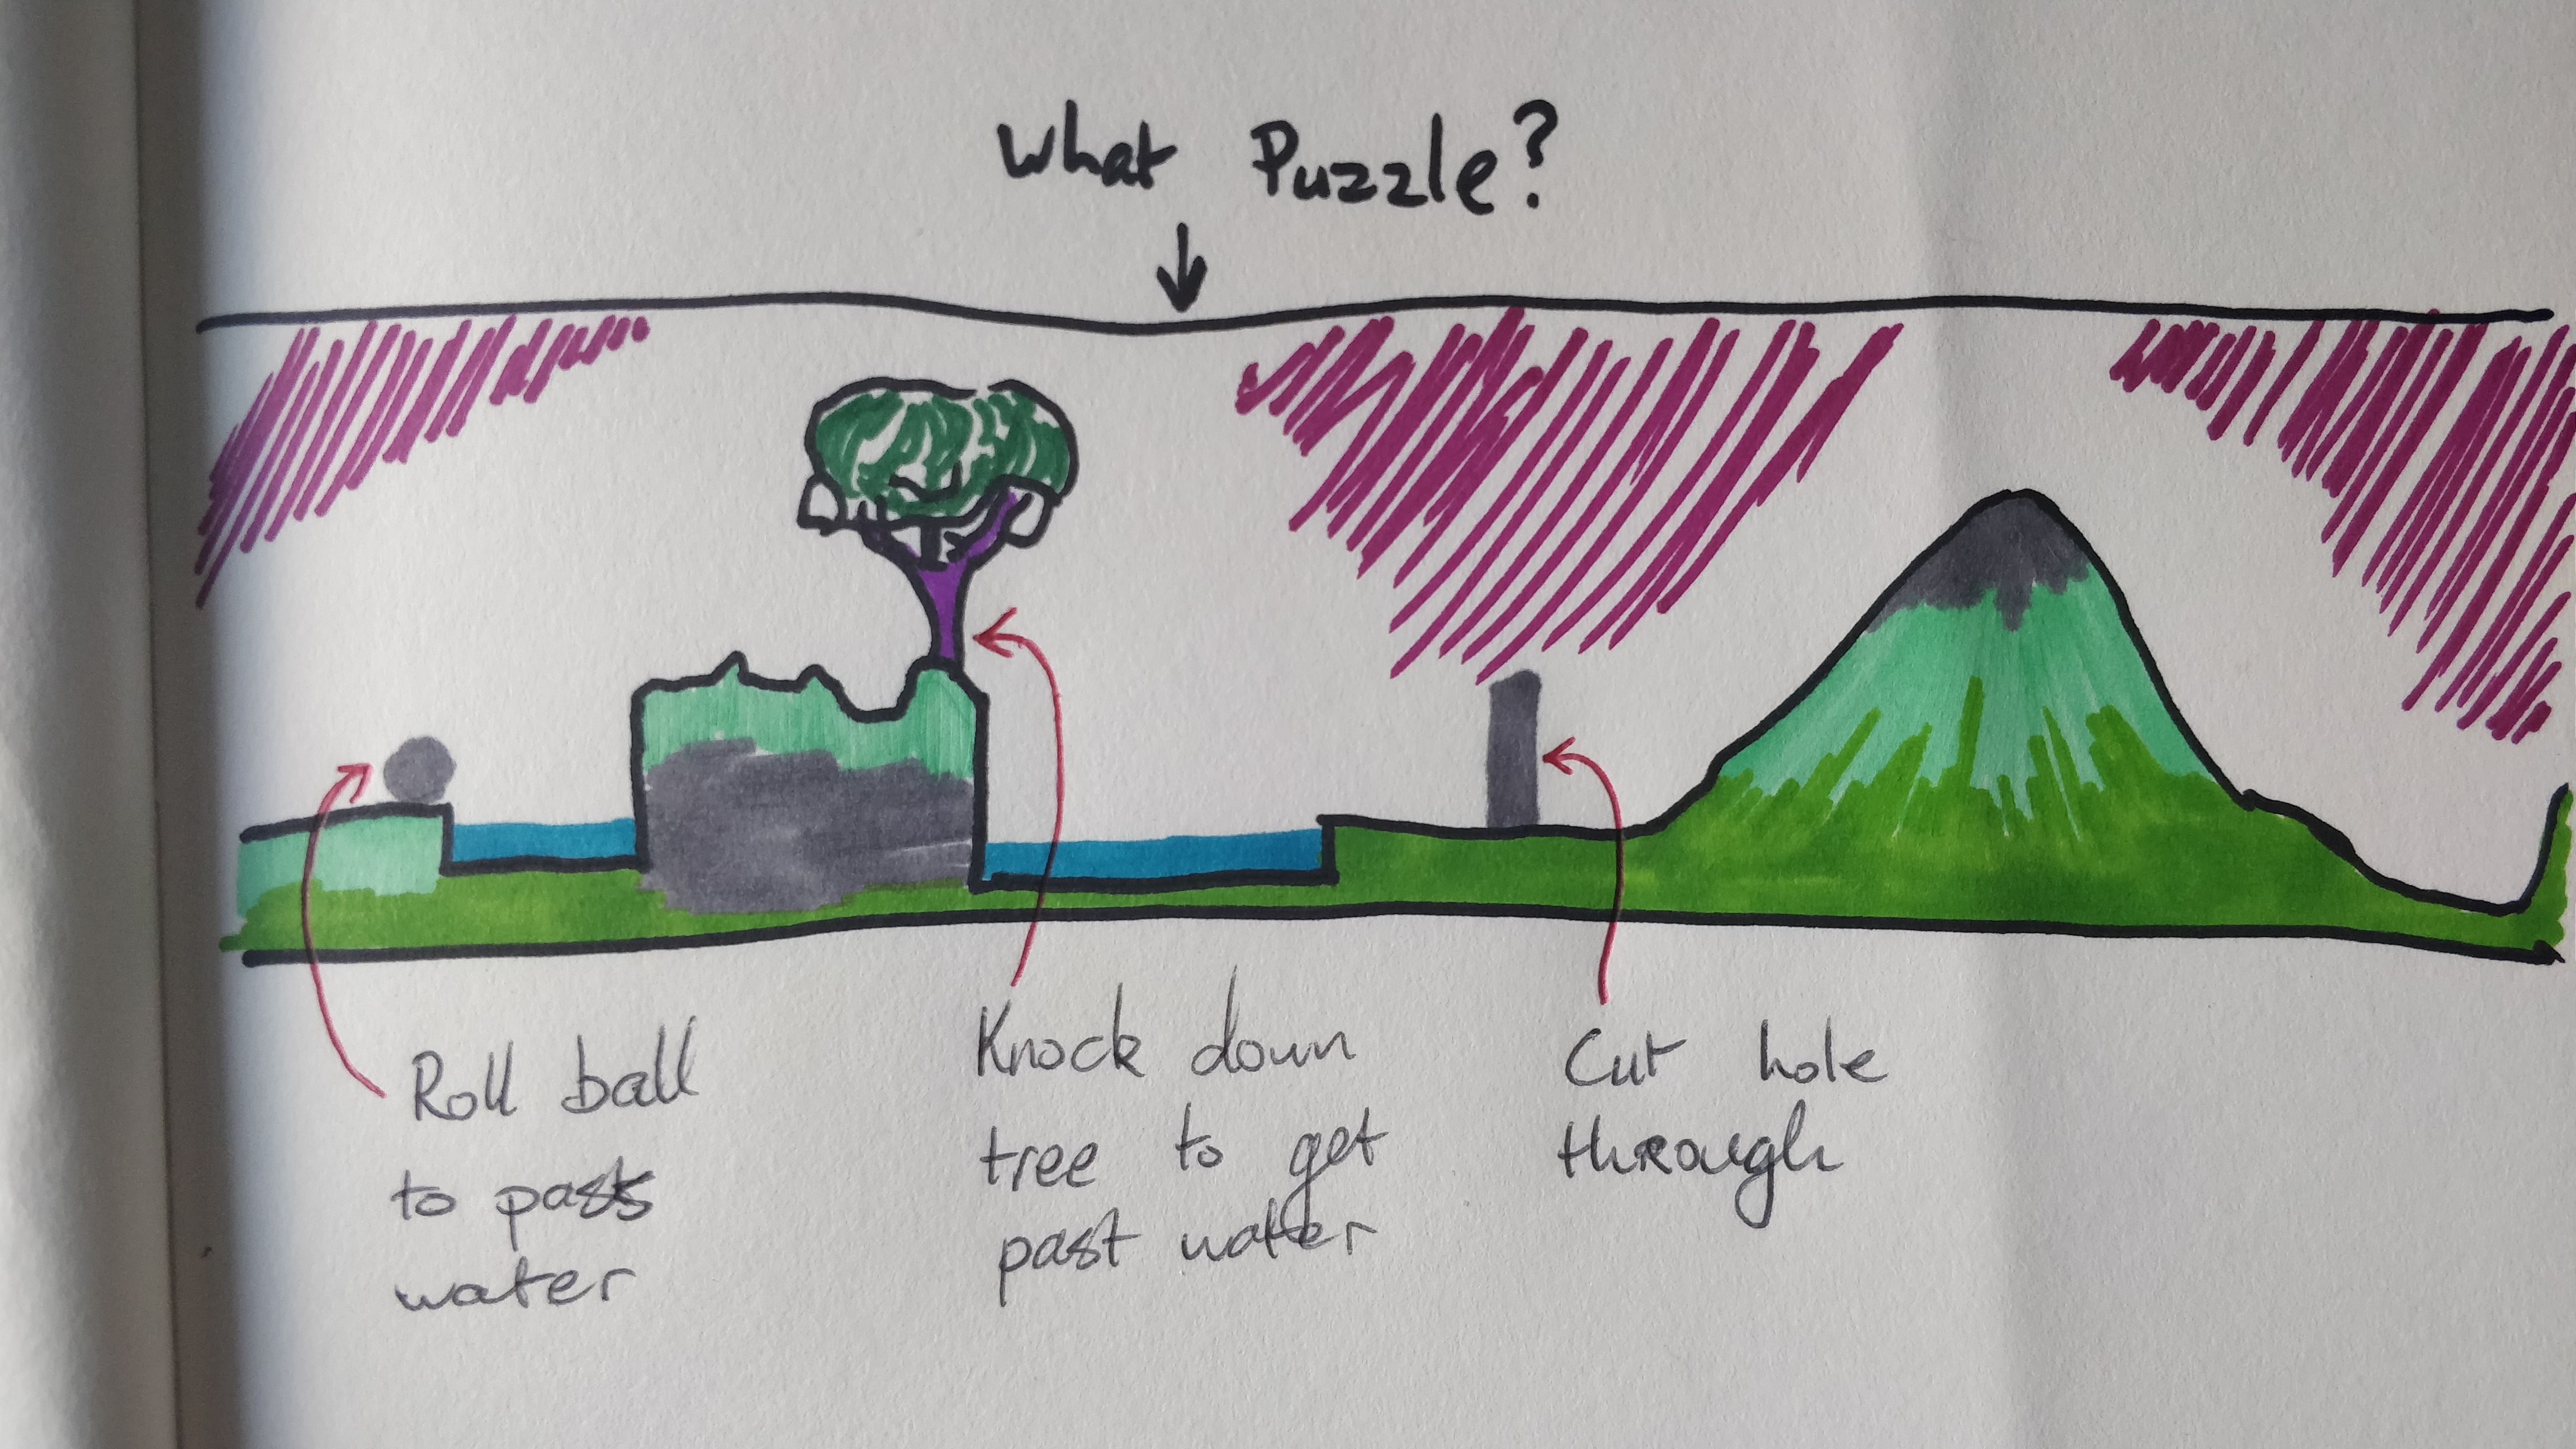 What Puzzle?
Roll ball
to pass
water
Knock down
tree to get
past water
Cut hole
through